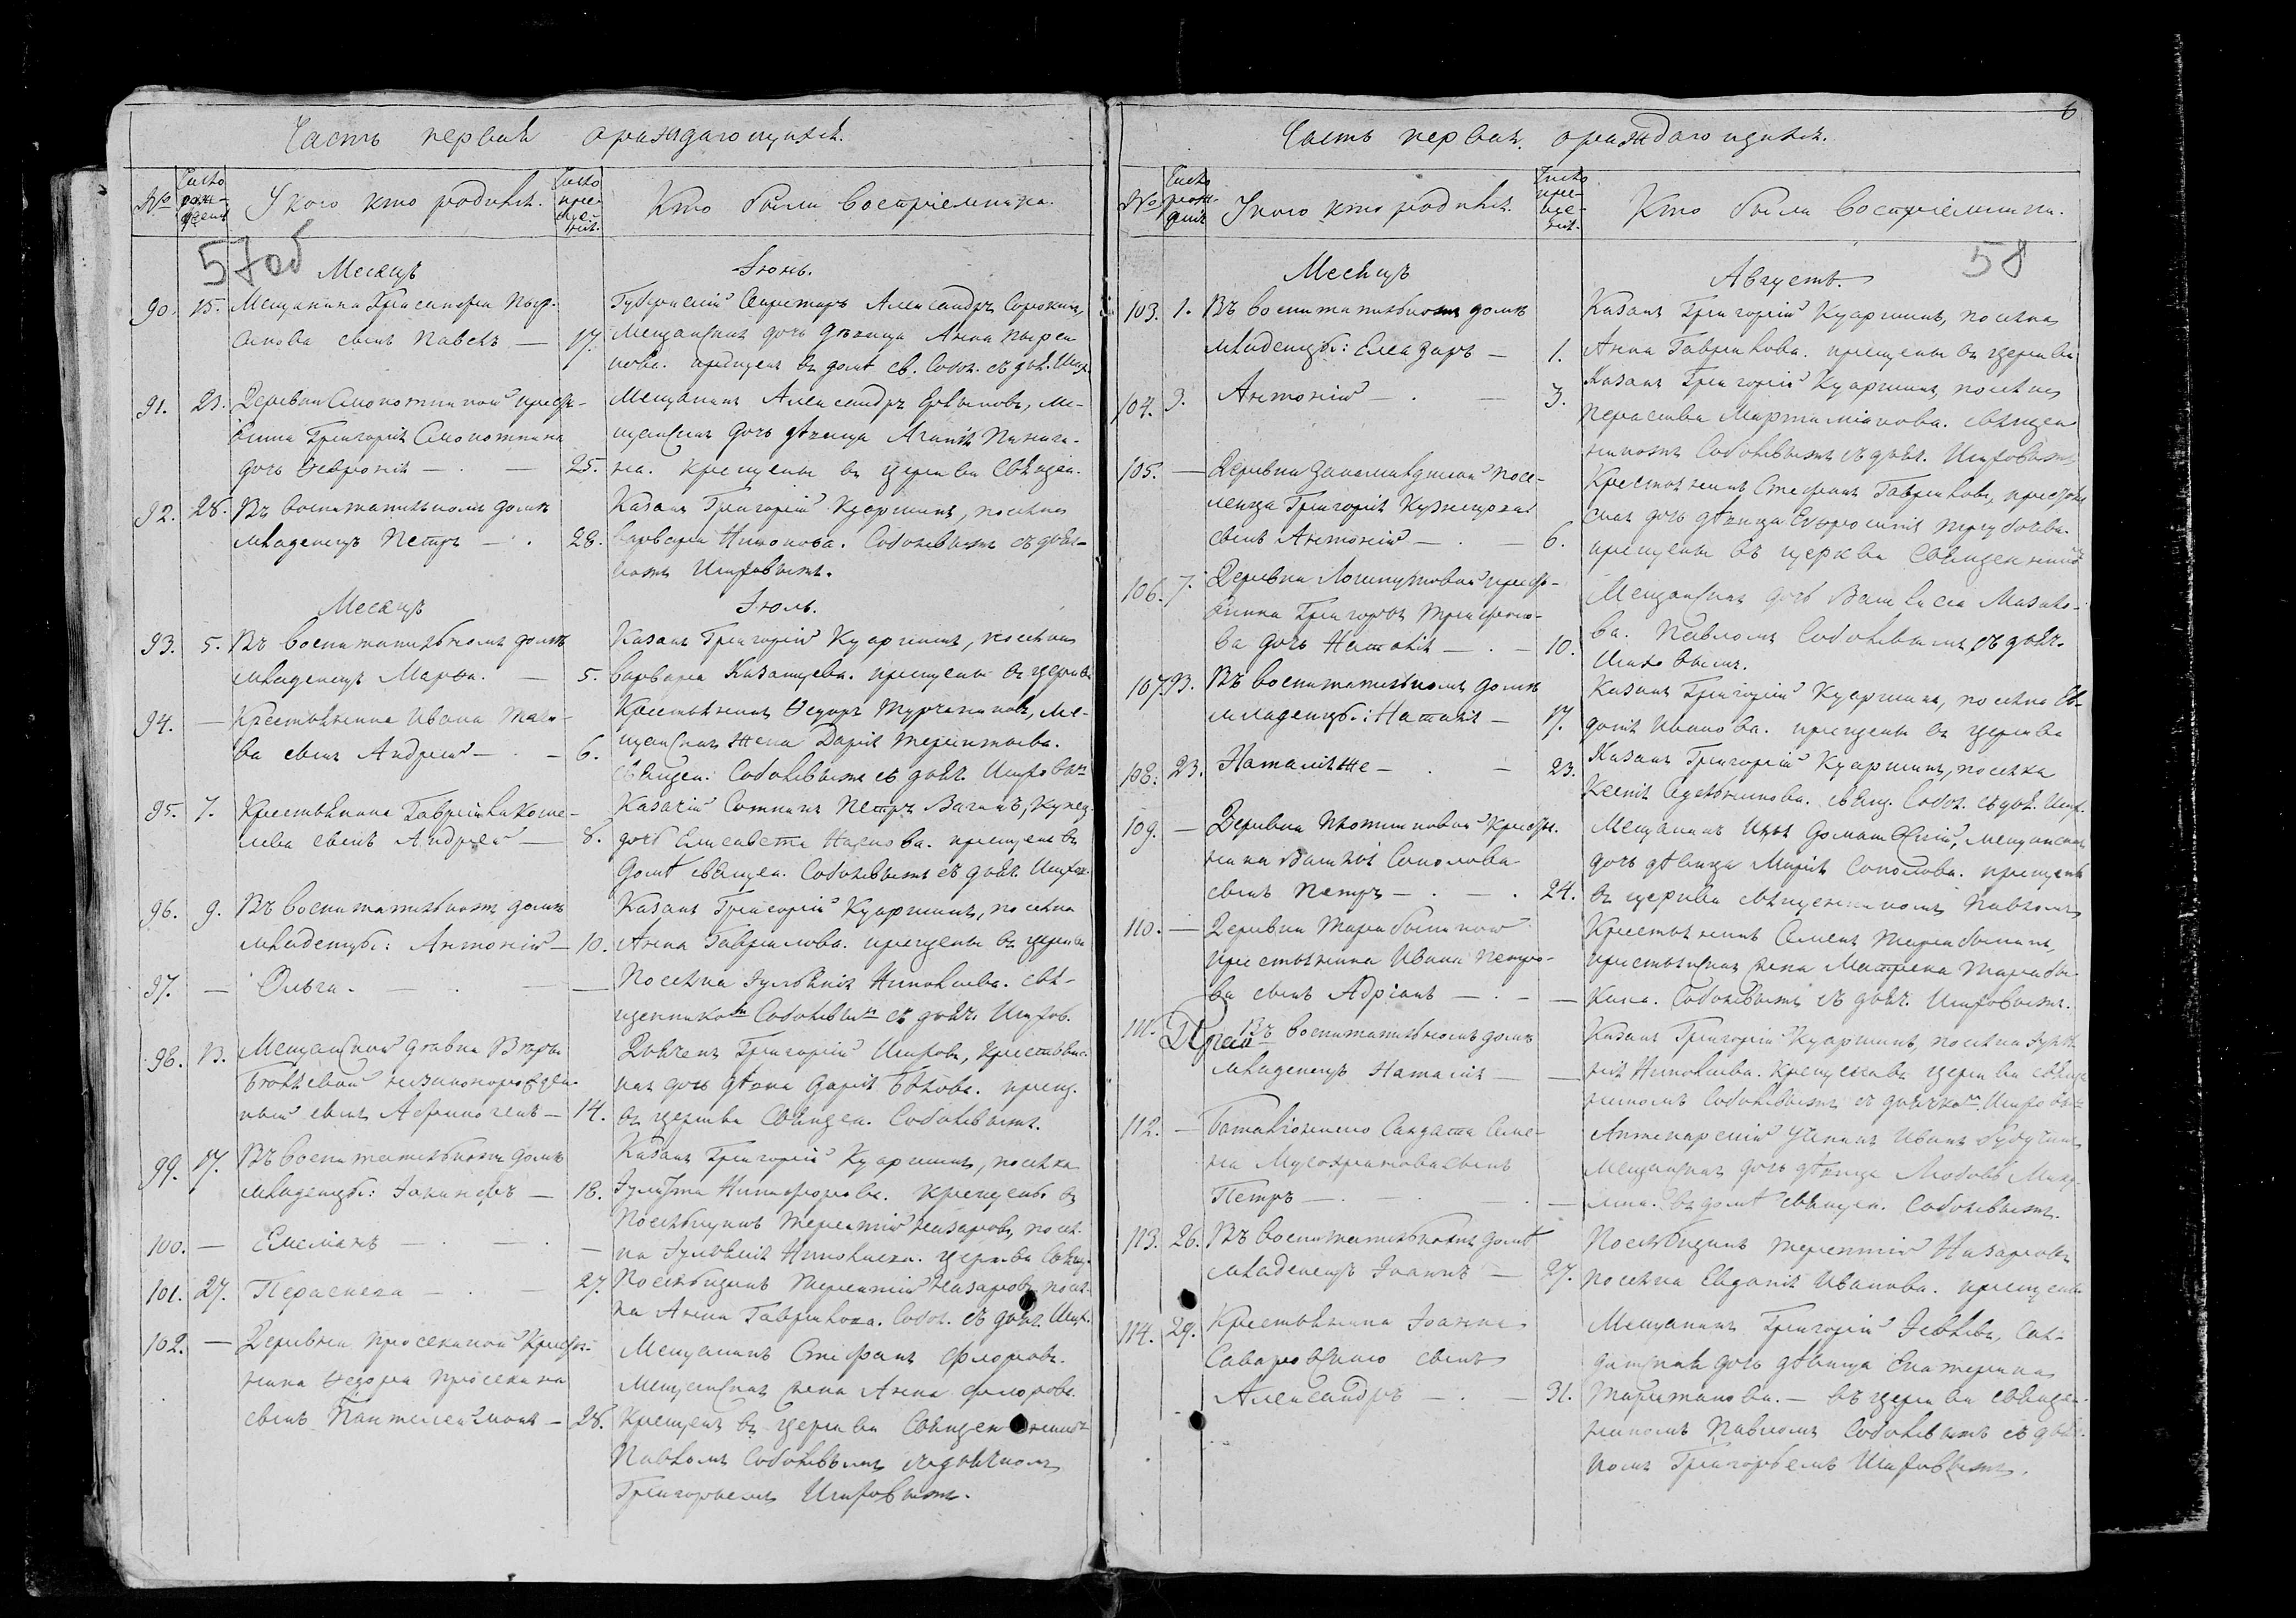 Часть первая о раждающихся.
№
Число рождения
У кого кто родился.
Число крещения.
Кто были восприемники.
57об
Месяцъ Іюнь.
90. 15. Мещанина
сынъ Павелъ — 17.
Губернскій Секретарь Александръ Сорокинъ,
Мещанская дочь девица Анна
крещенъ въ домѣ св. Собол. съ дьяч. Шир.
91. 23. Деревни крестья-
нина Григорія
дочь Февронія — 25.
Мещанинъ Александръ ме-
щанская дочь дѣвица Агапія
крещены въ церкви Священ.
92. 28. Въ воспитательномъ домѣ
младенецъ Петръ — 28.
Казакъ Григорій Куаршинъ, поселка
Варвара Никонова. Соболевымъ съ дьяч-
комъ Шировымъ.
Месяцъ Іюль.
93. 5. Въ воспитательномъ домѣ
младенецъ Марѳа. — 5.
Казакъ Григорій Куаршинъ, поселка
Варвара Казанцева. крещены въ церкви
94. — Крестьянина Ивана
ва сынъ Андрей — 6.
Крестьянинъ Ѳедоръ Турчаниновъ, ме-
щанская жена Дарія Терентьева.
священ. Соболевымъ съ дьяч. Шировым
95. 7. Крестьянина Гавріила Коше-
лева сынъ Андрей — 8.
Казачій Сотникъ Петръ Вагинъ, купец.
дочь Елисавета крещенъ въ
домѣ священ. Соболевымъ съ дьяч. Широв.
96. 9. Въ воспитательномъ домѣ
младенцы: Антоній — 10.
Казакъ Григорій Куаршинъ, поселка
Анна Гаврилова. крещены въ церкви
97. — Ольга. — —
Поселка Іуліанія Николаева. свя-
щенникомъ Соболевымъ съ дьяч. Широв.
98. 13. Мещанской дѣвки Вѣры
незаконорожден-
ный сынъ Аѳиногенъ — 14.
Дьячекъ Григорій Шировъ, Крестьян-
ская дочь дѣвка Дарія Бѣлова. крещ.
въ церкви Священ. Соболевымъ.
99. 17. Въ воспитательномъ домѣ
младенцы: Іакинѳъ — 18.
Казакъ Григорій Куаршинъ, поселка
Іулитта Никифорова. крещены въ
100. — Емеліанъ — —
Посельщикъ Терентій Назаровъ, посел-
ка Іуліанія Николаева. церкви Свящ.
101. 27. Параскева — 27.
Посельщикъ Терентій Назаровъ, посел-
ка Анна Гаврилова. Собол. съ дьяч. Шир.
102. — Деревни Просекиной Крестья-
нина Ѳедора Просекина
сынъ Пантелеимонъ — 28.
Мещанинъ Стефанъ Флоровъ.
Мещанская жена Анна Флорова.
Крещенъ въ церкви Священникомъ
Павломъ Соболевымъ съ дьячкомъ
Григорьемъ Шировымъ.
6
Часть первая о раждающихся.
№
Число рождения
У кого кто родился.
Число крещения.
Кто были восприемники.
58
Месяцъ Августъ.
103. 1. Въ воспитательномъ домѣ
младенцы: Елеазаръ — 1.
Казакъ Григорій Куаршинъ, поселка
Анна Гаврилова. крещены въ церкви
104. 3. Антоній — 3.
Казакъ Григорій Куаршинъ, поселка
Параскева Мартиміанова. священ
никомъ Соболевымъ съ дьяч. Шировымъ
105. — Деревни посе-
ленца Григорія Кузнецова
сынъ Антоній — 6.
Крестьянинъ Стефанъ Гавриловъ, крестьян
ская дочь дѣвица Евфросинія Трубачева.
крещены въ церкви Священникомъ
106. 7. Деревни крестья-
нина Григорья Трифоно-
ва дочь Наталія — 10.
Мещанская дочь Василиса
ва. Павломъ Соболевымъ съ дьяч.
Шировымъ.
107. 13. Въ воспитательномъ домѣ
младенцы: Наталія — 17.
Казакъ Григорій Куаршинъ, поселка Ев-
докія Иванова. крещены въ церкви
108. 23. Наталія же — 23.
Казакъ Григорій Куаршинъ, поселка
Ксенія свящ. Собол. съ дьяч. Шир.
109. — Деревни Плотниковой Крестья-
нина Василія Соколова
сынъ Петръ — 24.
Мещанинъ Илья мещанская
дочь дѣвица Марія Соколова. крещенъ
въ церкви священникомъ Павломъ
110. — Деревни Тарабыкиной
крестьянина Ивана Петро-
ва сынъ Адріанъ — —
Крестьянинъ Семенъ Тарабыкинъ,
крестьянская жена Матрена Тарабы-
кина. Соболевымъ съ дьяч. Шировымъ.
111. Въ воспитательномъ домѣ
младенецъ Наталія — —
Казакъ Григорій Куаршинъ, поселка Іулі
нія Николаева. Крещена въ церкви священ
никомъ Соболевымъ съ дьячкомъ Шировым
112. — Баталіоннаго Солдата Семе-
на сынъ
Петръ — —
Аптекарскій Ученикъ Иванъ
мещанская дочь дѣвица Любовь
въ домѣ священ. Соболевымъ.
113. 26. Въ воспитательномъ домѣ
младенецъ Іоаннъ — 27.
Посельщикъ Терентій Назаровъ
поселка Евдокія Иванова. крещены
114. 29. Крестьянина Іоанна
Саваровскаго сынъ
Александръ — 31.
Мещанинъ Григорій Сол-
датская дочь дѣвица Екатерина
— въ церкви священ-
никомъ Павломъ Соболевымъ съ дьяч-
комъ Григорьемъ Шировымъ.